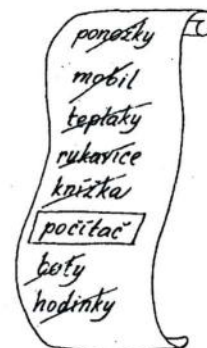 ponožky
mobil
tepláky
rukavice
knížka
počítač
boty
hodinky